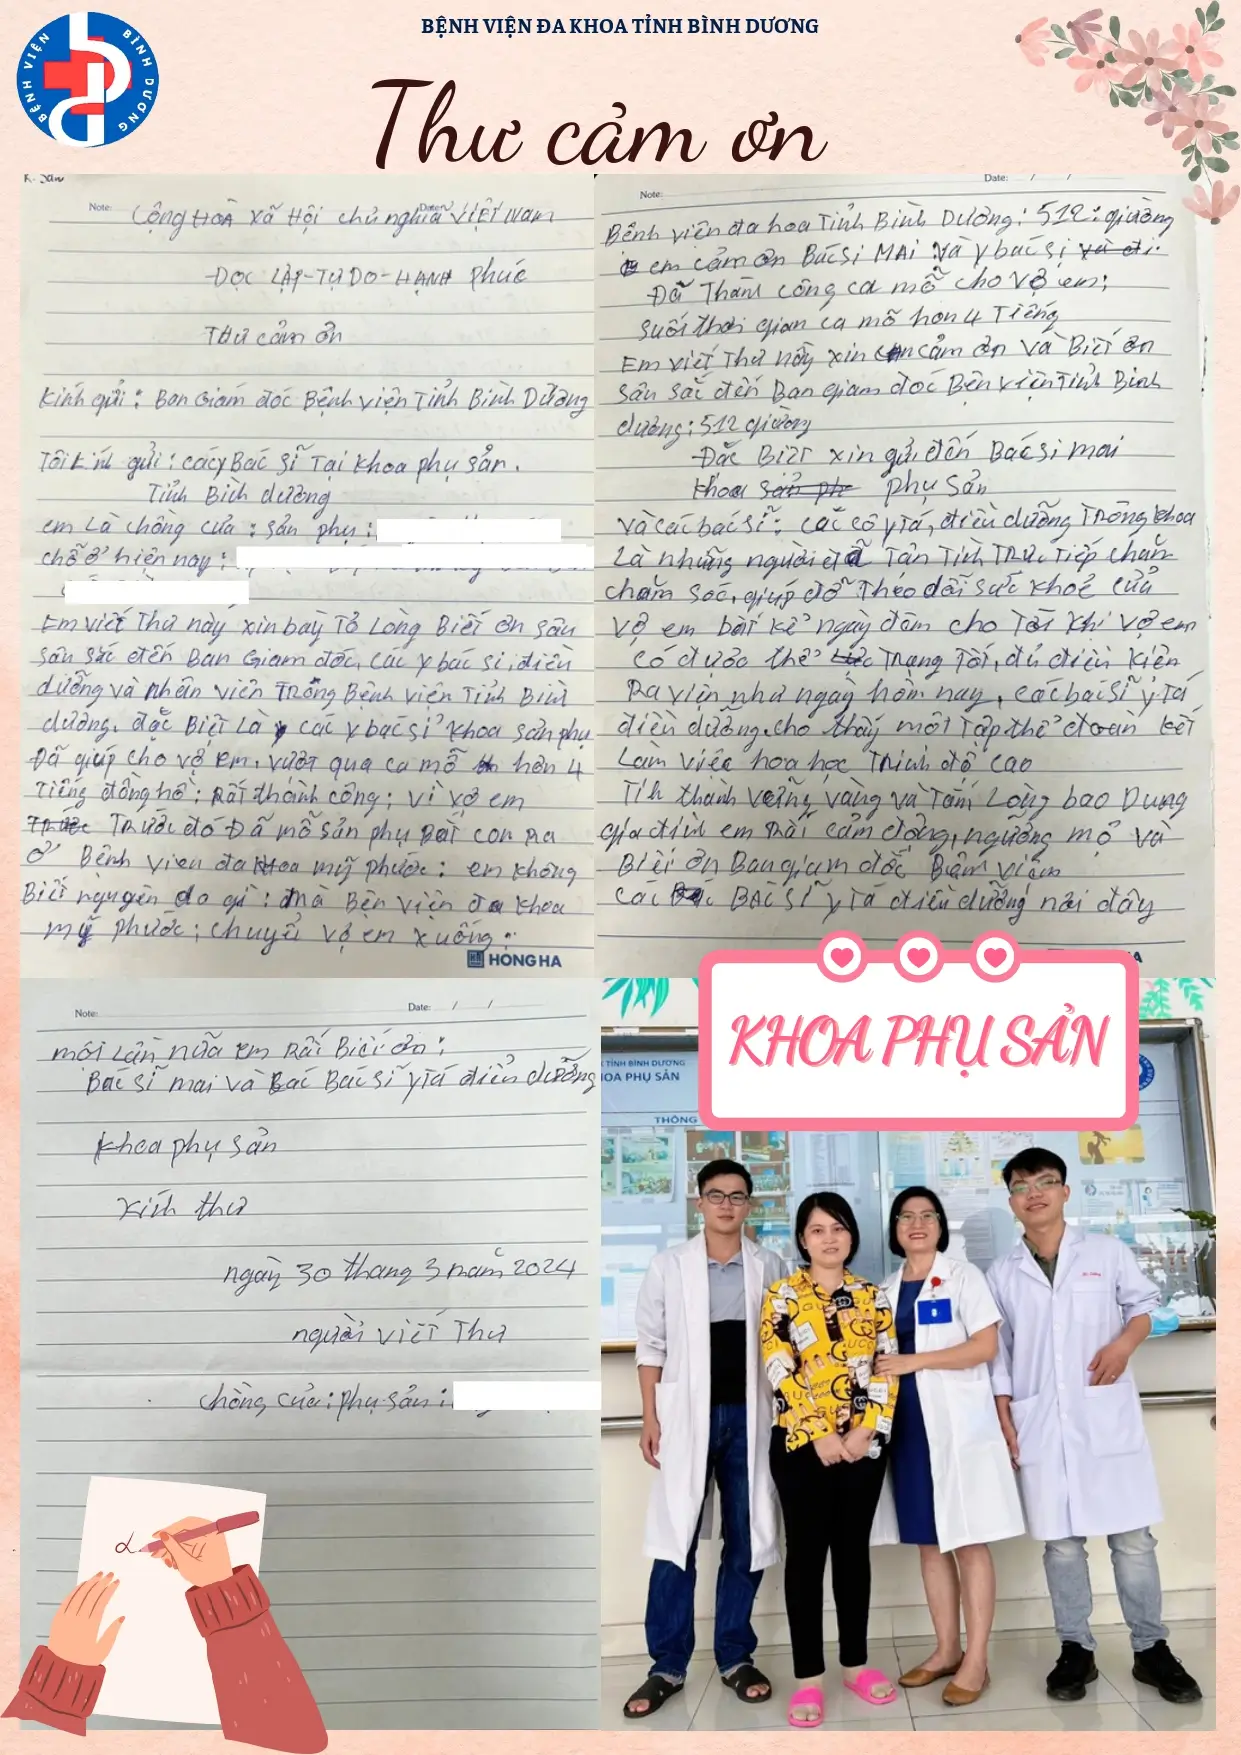 BỆNH VIỆN ĐA KHOA TỈNH BÌNH DƯƠNG
BỆNH VIỆN BÌNH DƯƠNG
Thư cảm ơn
Note: Date:
Cộng Hoà xã Hội chủ nghĩa Việt Nam
-Độc Lập-Tự Do-Hạnh phúc
Thư cảm ơn
Kính gửi: Ban Giám đốc Bệnh viện Tỉnh Bình Dương
Tôi kính gửi: các y Bác sĩ Tại khoa phụ sản.
Tỉnh Bình dương
em Là chồng của: sản phụ:
chỗ ở hiện nay:
Em viết Thư này xin bày Tỏ Lòng Biết ơn sâu
sâu sắc đến Ban Giam đốc, các y bác si, điều
dưỡng và nhân viên Trong Bệnh viện Tỉnh Bình
dương. đặc Biệt Là các y bác sĩ khoa sản phụ
Đã giúp cho vợ em. vượt qua ca mỗ hơn 4
Tiếng đồng hồ; Rất thành công; vì vợ em
Trước Trước đó Đã mỗ sản phụ Bắt con Ra
ở Bệnh viện đa khoa mỹ phước: em không
Biết nguyên do gì: mà Bện viện đa khoa
mỹ phước; chuyễn vợ em xuống:
HỒNG HÀ
Note: Date: / /
Bệnh viện đa hoa Tỉnh Bình Dương: 512: giường
em cảm ơn Bác si MAI và y bác si và đi.
Đã Thành công ca mỗ cho vợ em;
suốt thời gian ca mỗ hơn 4 Tiếng
Em viết Thư nầy xin cảm ơn và Biết ơn
sâu sắc đến Ban giam đốc Bện viện Tỉnh Bình
dương: 512 giường
-Đặc Biệt xin gửi đến Bác si mai
khoa sản ph phụ sản
và các bác sĩ: các cô y tá, điều dưỡng Trong khoa
Là những người đã Tận Tình Trực Tiếp chăm
chăm sóc, giúp đỡ Theo dõi sức khoẻ của
vợ em bất kể ngày đêm cho Tới khi vợ em
có được thể Trạng Tốt, đủ điều kiện
Ra viện như ngày hôm nay, các bác sĩ y Tá
điều dưỡng cho thấy một Tập thể đoàn kết
Làm việc hoa học Trình độ cao
vững vàng và Tấm Lòng bao Dung
gia đình em Rất cảm động, ngưỡng mộ và
Biết ơn Ban giam đốc Bệnh viện
các BÁC SĨ y tá điều dưỡng nơi đây
Note: Date: / /
một Lần nữa em Rất Biết ơn:
Bác sĩ mai và Các Bác sĩ y tá điều dưỡng
khoa phụ sản
Kính thư
ngày 30 thang 3 năm 2024
người viết Thư
chồng của: phụ sản:
KHOA PHỤ SẢN
TỈNH BÌNH DƯƠNG
KHOA PHỤ SẢN
THÔNG